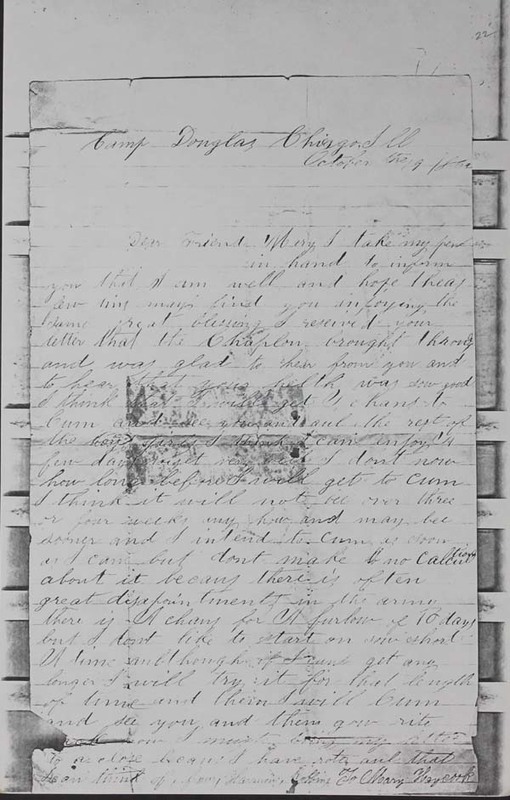 22
Camp Douglas Chicgo Ill
October the 9 186
Dear Friend Mery I take my pen
in hand to inform
you that I am well and hope theas
few lins may find you enjoying the
same great blessing I reseved your
letter that the Chaplon brought throug
and was glad to hear from you and
to hear that your helth was sow good
I think I would get a chans to
Cum and see you and all the rest of
the I think I can enjoy a
few days I dont now
how long before I will get to Cum
I think it will not be over three
or four weeks any how and may bee
sooner and I intend to Cum as soon
as I can but dont make to no Calculations
about it becaus there is often
great disapointments in the army
there is A chans for A furlow of 10 days
but I dont like to start on sow short
A time and though if I cant get any
longer I will try it for that length
of time and then I will Cum
and see you and them gow rite
back now I must bring my letter
to a close becaus I have rote all that
I can think of now Collins To Mary Haycock